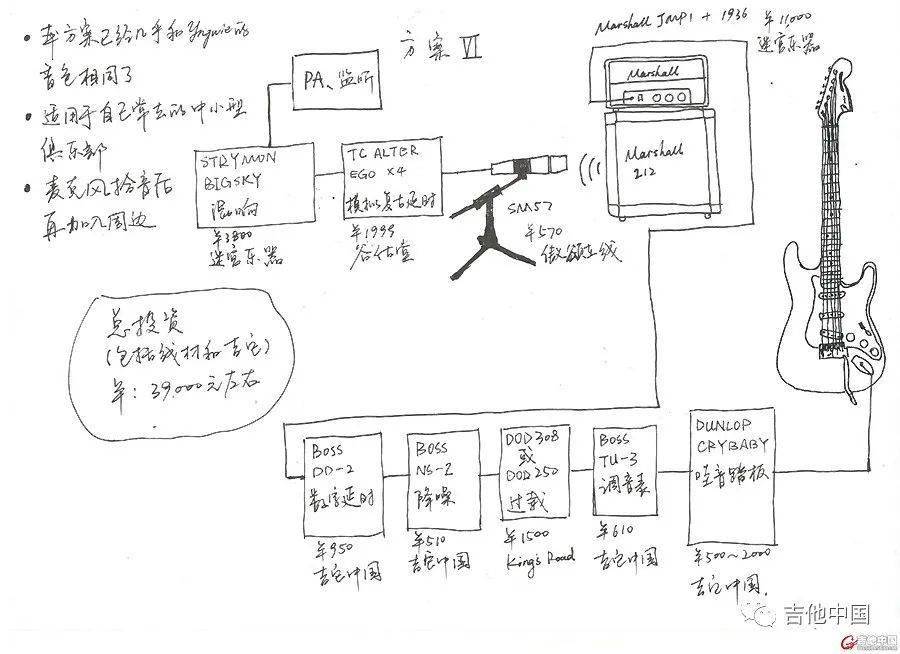 • 本方案已经几乎和Yngwie的
音色相同了
• 适用于自己常去的中小型
俱乐部
• 麦克风拾音后
再加入周边
方案 VI
PA、监听
STRYMON
BIGSKY
混响
¥3800
迷宫乐器
TC ALTER
EGO X4
模拟复古延时
¥1999
谷估值
SM57
¥570
傲颂在线
Marshall JMP1 + 1936
¥11,000
迷宫乐器
Marshall
Marshall
212
总投资
(包括线材和吉它)
¥: 39.000元左右
BOSS
DD-2
数字延时
¥950
吉它中国
BOSS
NS-2
降噪
¥510
吉它中国
DOD308
或
DOD250
过载
¥1500
King's Road
BOSS
TU-3
调音表
¥610
吉它中国
DUNLOP
CRYBABY
哇音踏板
¥500~2000
吉它中国.
吉他中国
吉他中国